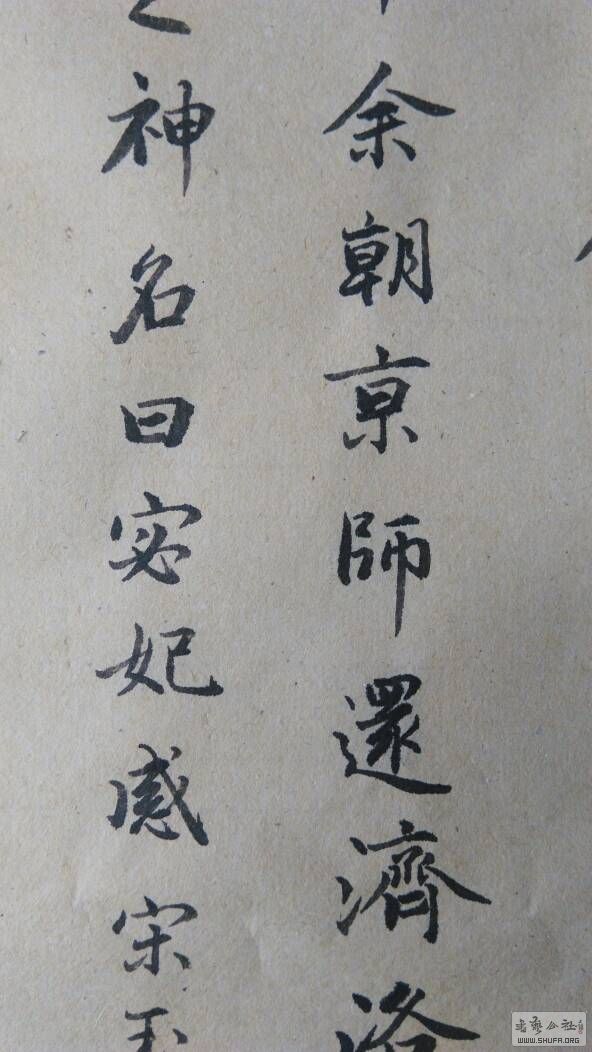 余朝亰師還濟洛
神名曰宓妃感宋玉
书艺公社
WWW.SHUFA.ORG